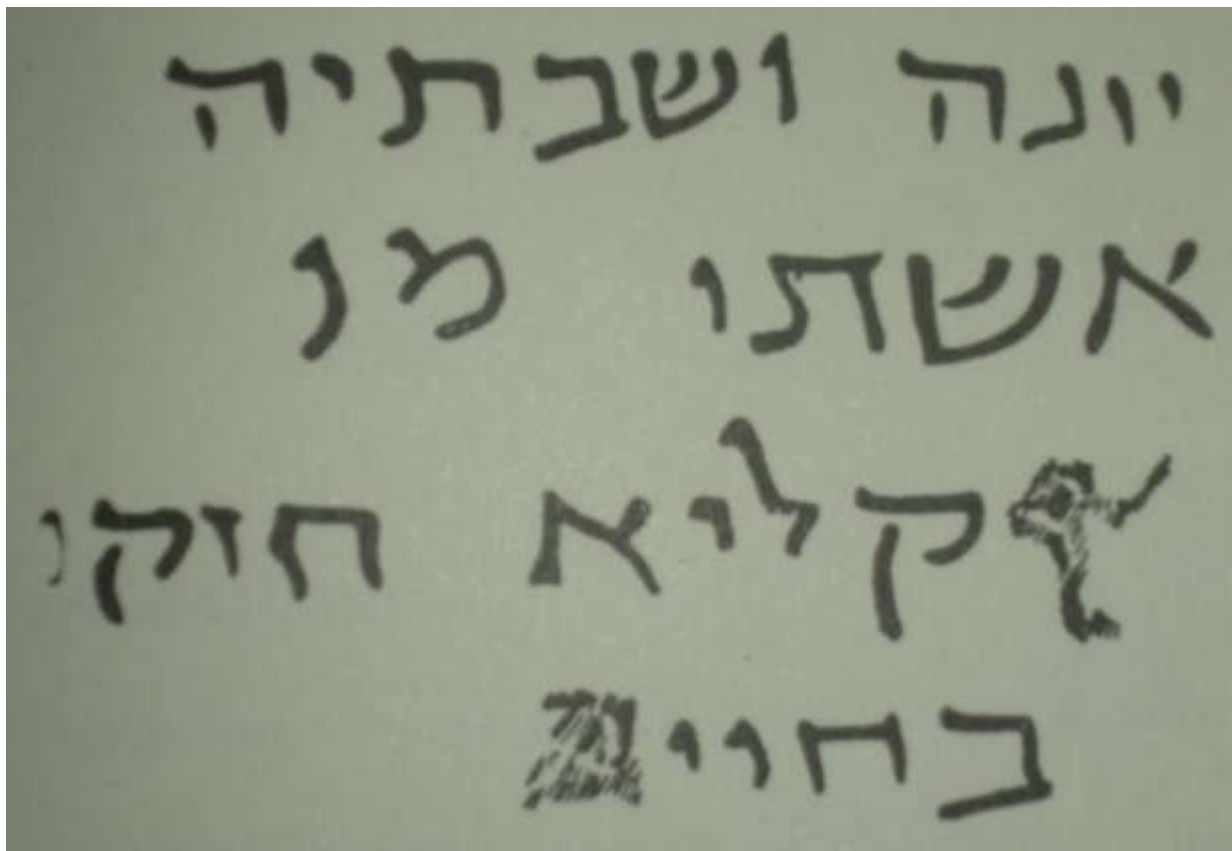 יונה ושבתיה
אשתו מנ
קליא חזקו
בחויים